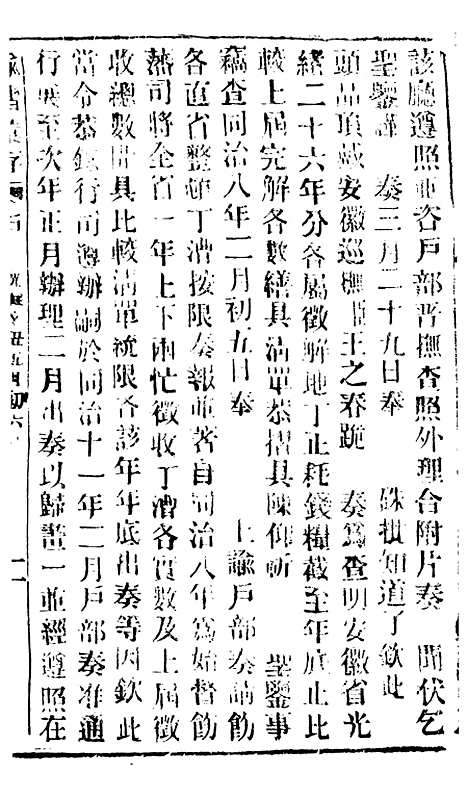 該廳遵照並咨戶部晋撫查照外理合附片奏　聞伏乞
聖鑒謹　奏三月二十九日奉　硃批知道了欽此
頭品頂戴安徽巡撫臣王之春跪　奏爲查明安徽省光
緒二十六年分各屬徵解地丁正耗錢糧截至年底止比
較上屆完解各數繕具清單恭摺具陳仰祈　聖鑒事
竊查同治八年二月初五日奉　上諭戶部奏請飭
各直省整頓丁漕按限奏報並著自同治八年爲始督飭
藩司將全省一年上下兩忙徵收丁漕各實數及上屆徵
收總數開具比較清單統限各該年年底出奏等因欽此
當令恭錄行司遵辦嗣於同治十一年二月戶部奏准通
行展至次年正月辦理二月出奏以歸畫一並經遵照在
諭摺彙存　光緒辛丑五月初六　二